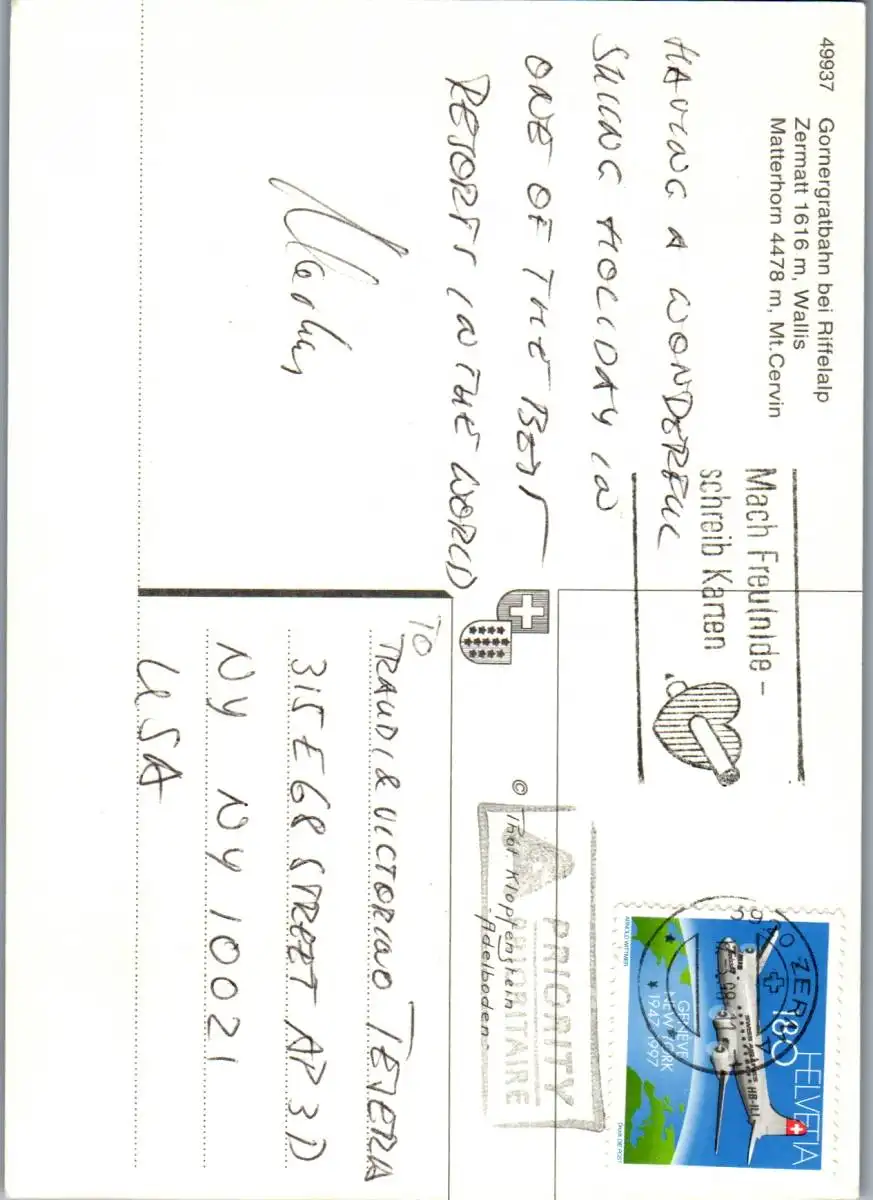 49937 Gornergratbahn bei Riffelalp
Zermatt 1616 m, Wallis
Matterhorn 4478 m, Mt.Cervin
HAVING A WONDERFUL
SKIING HOLIDAY IN
ONE OF THE BEST
RESORTS IN THE WORLD
Mach Freu(n)de -
schreib Karten
HELVETIA
180
HB-ILI
GENÈVE
NEW YORK
1947-1997
5920 ZER
98-11
PRIORITY
PRIORITAIRE
© Thor. Klopfenstein
Adelboden
TO
TRAUDI & VICTORINO TEJERA
315 E 68 STREET AP 3D
NY NY 10021
USA